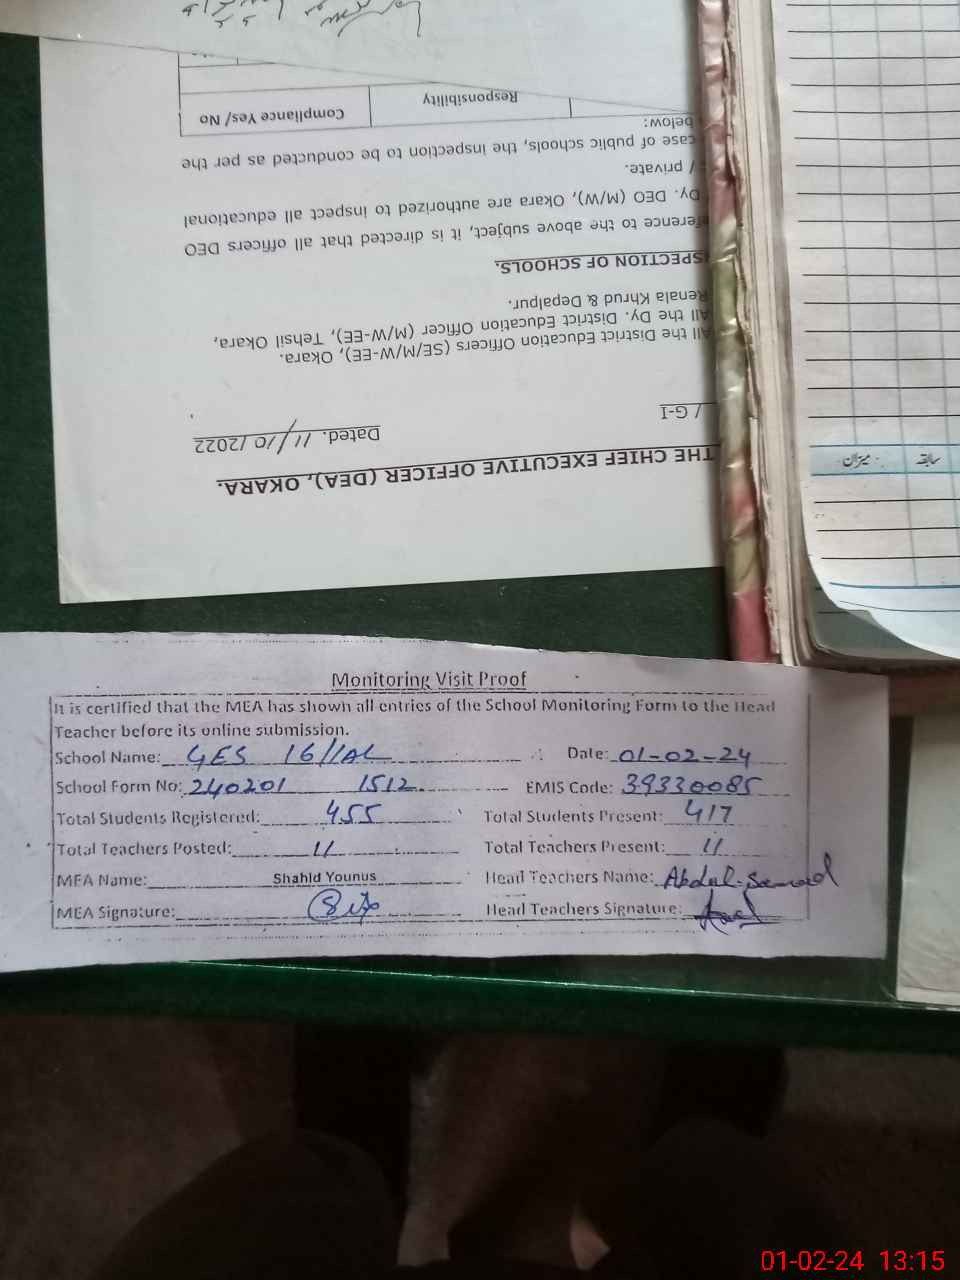 THE CHIEF EXECUTIVE OFFICER (DEA), OKARA.
/ G-I
Dated. 11/10/2022
All the District Education Officers (SE/M/W-EE), Okara.
All the Dy. District Education Officer (M/W-EE), Tehsil Okara,
Renala Khrud & Depalpur.
SPECTION OF SCHOOLS.
eference to the above subject, it is directed that all officers DEO
Dy. DEO (M/W), Okara are authorized to inspect all educational
/ private.
case of public schools, the inspection to be conducted as per the
below:
Responsibility
Compliance Yes/ No
سابقہ
میزان
Monitoring Visit Proof
It is certified that the MEA has shown all entries of the School Monitoring Form to the Head
Teacher before its online submission.
School Name: GES 16/1AL Date: 01-02-24
School Form No: 240201 1512 EMIS Code: 39330085
Total Students Registered: 455 Total Students Present: 417
Total Teachers Posted: 11 Total Teachers Present: 11
MEA Name: Shahid Younus Head Teachers Name: Abdul Samad
MEA Signature: Head Teachers Signature:
01-02-24 13:15